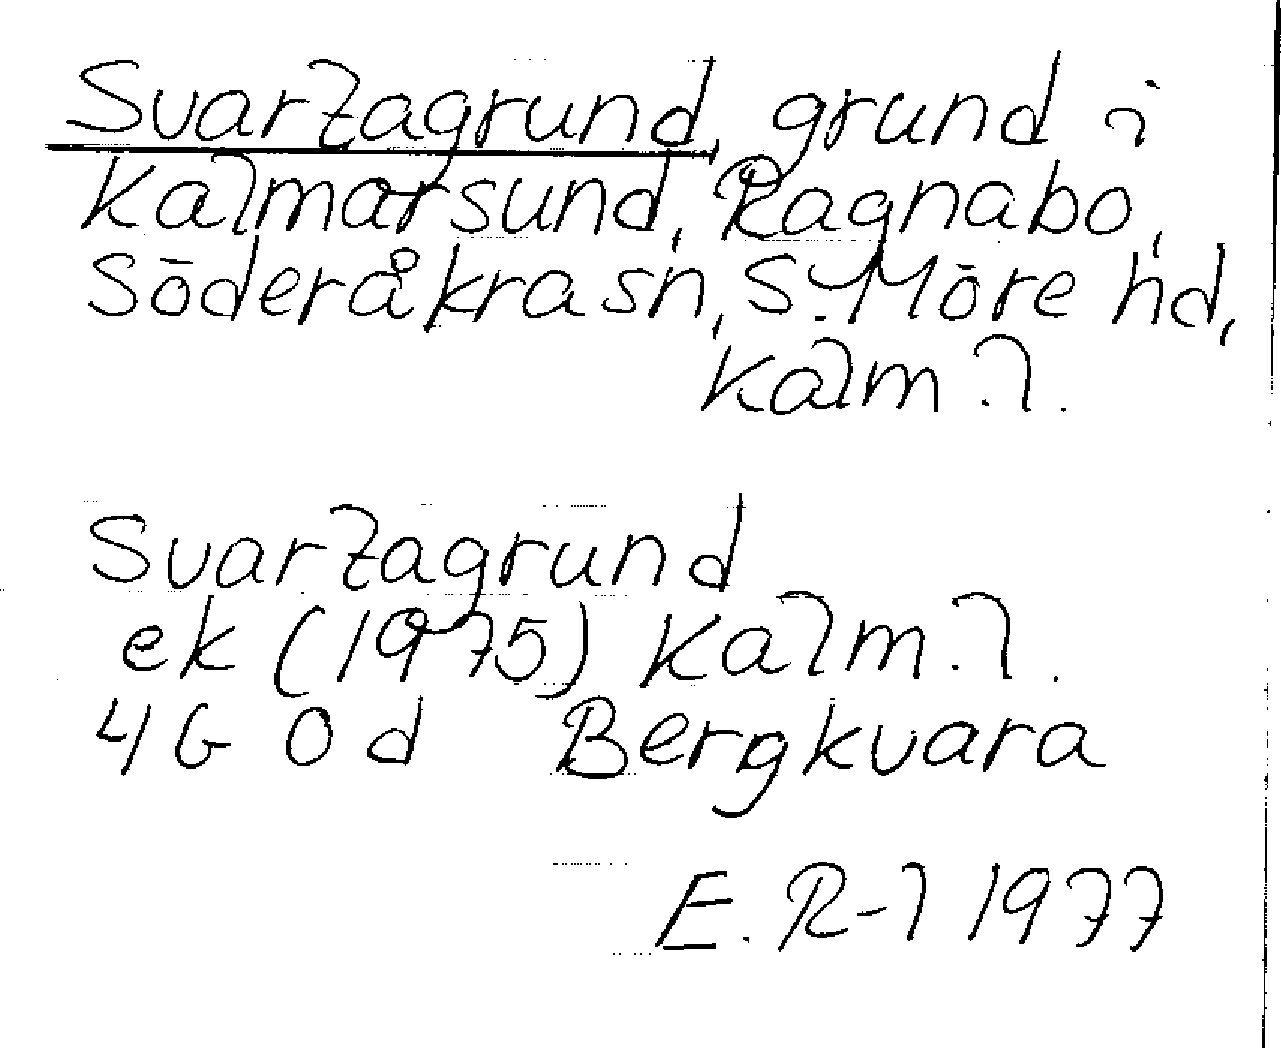 Svartagrund, grund i
Kalmarsund, Ragnabo,
Söderåkra sn, S. Möre hd,
Kalm. l.
Svartagrund
ek (1975) Kalm. l.
4G 0d Bergkvara
E. R-l 1977